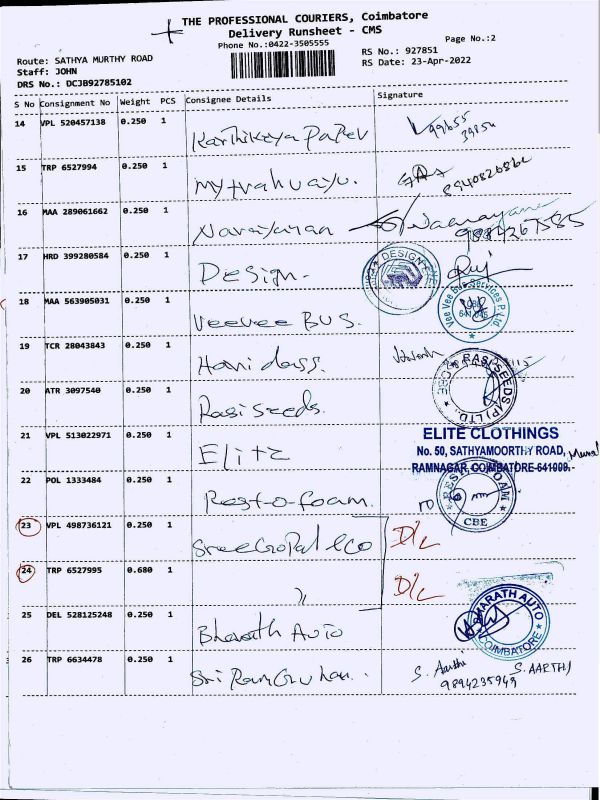 THE PROFESSIONAL COURIERS, Coimbatore
Delivery Runsheet - CMS
Phone No.:0422-3505555
Page No.:2
Route: SATHYA MURTHY ROAD
RS No.: 927851
Staff: JOHN
RS Date: 23-Apr-2022
DRS No.: DCJB92785102
S No Consignment No Weight PCS Consignee Details Signature
14 VPL 520457138 0.250 1 Karthikeya Paper
15 TRP 6527994 0.250 1
16 MAA 289061662 0.250 1 Narayanan
9884267585
17 HRD 399280584 0.250 1 Design.
18 MAA 563905031 0.250 1 Veevee BUS.
Vee Vee Bus Services P Ltd
19 TCR 28043843 0.250 1 Hari dass.
20 ATR 3097540 0.250 1 Rasi seeds.
RASI SEEDS (P) LTD., CBE
21 VPL 513022971 0.250 1 Elite
ELITE CLOTHINGS
No. 50, SATHYAMOORTHY ROAD,
RAMNAGAR, COIMBATORE-641009.
22 POL 1333484 0.250 1 Rest-o-foam.
CBE
23 VPL 498736121 0.250 1 Sree Gopal & co D/L
24 TRP 6527995 0.680 1 " D/L
25 DEL 528125248 0.250 1 Bharath Auto
BHARATH AUTO COIMBATORE
26 TRP 6634478 0.250 1 Sri Ram Guhan..
S. Aarthi S. AARTHI
9894235949